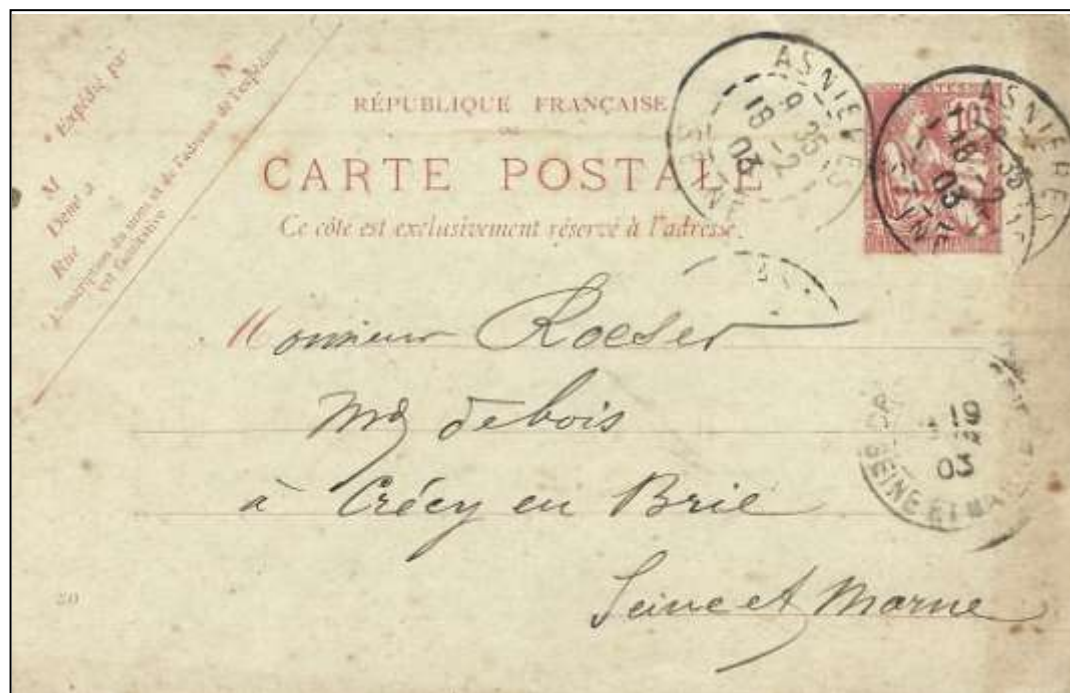 * Expédié par
N°
M
Demt à
Rue
L'inscription du nom et de l'adresse de l'expéditeur
est facultative
RÉPUBLIQUE FRANÇAISE
CARTE POSTALE
Ce côté est exclusivement réservé à l'adresse.
ASNIERES
9 35
18 -2
03
SEINE
10
ASNIERES
35
18 -2
03
Monsieur Roeser
Md de bois
à Crécy en Brie
Seine et Marne
19
03
SEINE ET MARNE
20